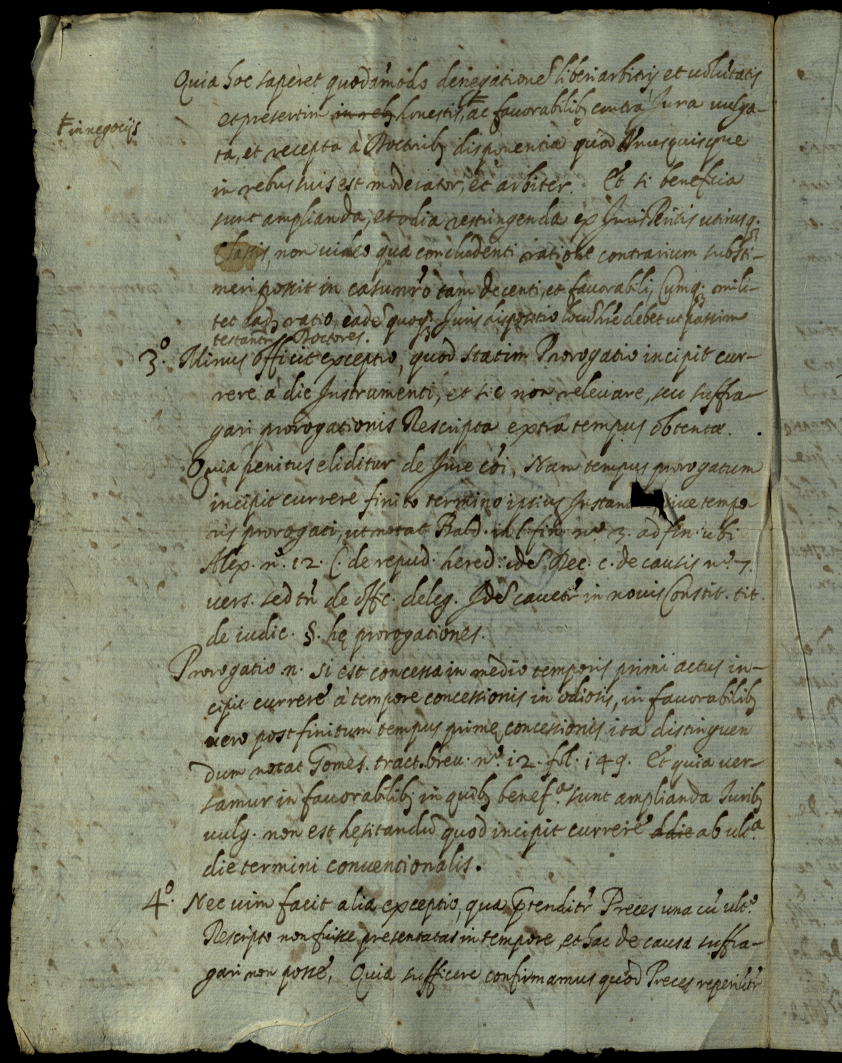 Quia hoc saperet quodãmodo denegationẽ liberi arbitrij et uolũtatis
et presertim in reb; honestis, ac fauorabilib; contra Jura uulga-
ŧ in negocijs
ta, et recepta à Doctorib; disponentia quòd Unusquisque
in rebus suis est moderator, et arbiter. Et si beneficia
sunt amplianda, et odia restringenda ex Juris utriusq;
non uideo qua concludenti ratione contrarium substi-
neri possit in casu nr̃o tam decenti, et fauorabili, Cumq; mili-
tet ead; ratio, eadẽ quoq; Juris dispositio locũ h̃re debet ut passim
testantr Doctores.
3º. Minus officit exceptio, quòd statim Prorogatio incipit cur-
rere à die Instrumenti, et sic non releuare, seu suffra-
gari prorogationis Rescripta extra tempus obtenta.
Quia penitus eliditur de Jure cõi, Nam tempus prorogatum
incipit currere finito termino ipsius siue tempo
ris prorogati, ut notat Bald. in l. fin. nº 3. ad fin. ubi
Alex. nº. 12. C. de repud. hered. idẽ Dec. c. de causis nº. 7.
uers. sed tñ de offic. deleg. Idẽ cauetr in nouis Constit. tit.
de iudic. §. hę prorogationes.
Prorogatio n. si est concessa in medio temporis primi actus in-
cipit currere à tempore concessionis in odiosis, in fauorabilib;
uero post finitum tempus primę concessionis ita distinguen
dum notat Gomes. tract. breu. nº. 12. fol. 149. Et quia uer-
samur in fauorabilib; in quib; benefª. sunt amplianda Jurib;
uulg. non est hęsitandũ quòd incipit currere à die ab ultª
die termini conuentionalis.
4º. Nec uim facit alia exceptio, qua p̃tenditr Preces una cũ ultº.
Rescripto non fuisse presentatas in tempore, et hac de causa suffra-
gari non posse, Quia sufficere confirmamus quòd Preces reperiũtr